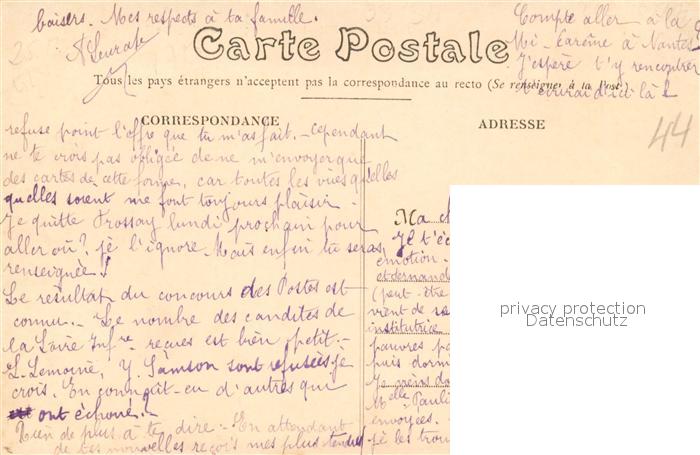 baisers. Mes respects à ta famille.
Carte Postale
Compte aller à la
Mi-Carême à Nantes
J'espère t'y rencontrer
t'écrirai d'ici là
Tous les pays étrangers n'acceptent pas la correspondance au recto (Se renseigner à la Poste)
CORRESPONDANCE
ADRESSE
44
refuse point l'offre que tu m'as fait. - Cependant
ne te crois pas obligée de ne m'envoyer que
des cartes de cette forme, car toutes les vues qu'elles
quelles soient me font toujours plaisir.-
Je quitte Frossay lundi prochain pour
aller où? je l'ignore. Mais enfin tu seras
renseignée!
Le résultat du concours des Postes est
connu.. Le nombre des candites de
la Loire Infre reçues est bien petit.-
L. Lemoine, Y. Samson sont refusées je
crois. On connaît-en d'autres qui
ont échoué.-
Rien de plus à te dire.- En attendant
de tes nouvelles reçois mes plus tendres
Ma ch
Je t'éc
émotion.-
et demand
(peut-être
vient de
institutrice
pauvres
puis dorm
Je
Melle Pauli
envoyées.
je les trou
privacy protection
Datenschutz